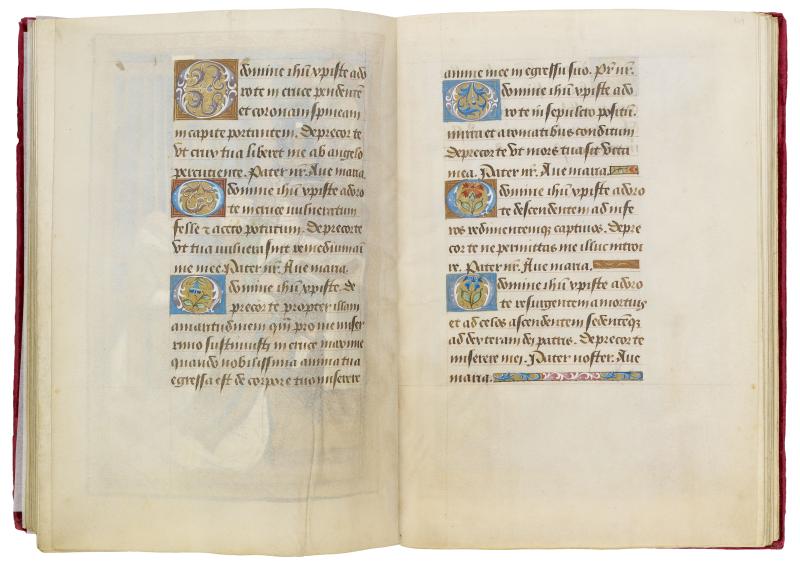 O domine ihū xpiste ado
ro te in cruce pendentē
et coronam spineam
in capite portantem. Deprecor te
vt crux tua liberet me ab angelo
percutiente. Pater nr̄. Aue maria.
O domine ihū xpiste adoro
te in cruce vulneratum
felle ⁊ aceto potatum. Deprecor te
vt tua vulnera sint remedium ani
me mee. Pater nr̄. Aue maria.
O domine ihū xpiste. De
precor te propter illam
amaritudinem quā pro me miser
rimo sustinuisti in cruce maxime
quando nobilissima anima tua
egressa est de corpore tuo miserere
anime mee in egressu suo. Pr̄ nr̄.
O domine ihū xpiste ado
ro te in sepulcro positū.
mirra et aromatibus conditum
Deprecor te vt mors tua sit vita
mea. Pater nr̄. Aue maria.
O domine ihū xpiste adoro
te descendentem ad infe
ros redimentemq̄ captiuos. Depre
cor te ne permittas me illuc introi
re. Pater nr̄. Aue maria.
O domine ihū xpiste adoro
te resurgentem a mortuis
et ad celos ascendentem sedentēq̄
ad dexteram dei patris. Deprecor te
miserere mei. Pater noster. Aue
maria.